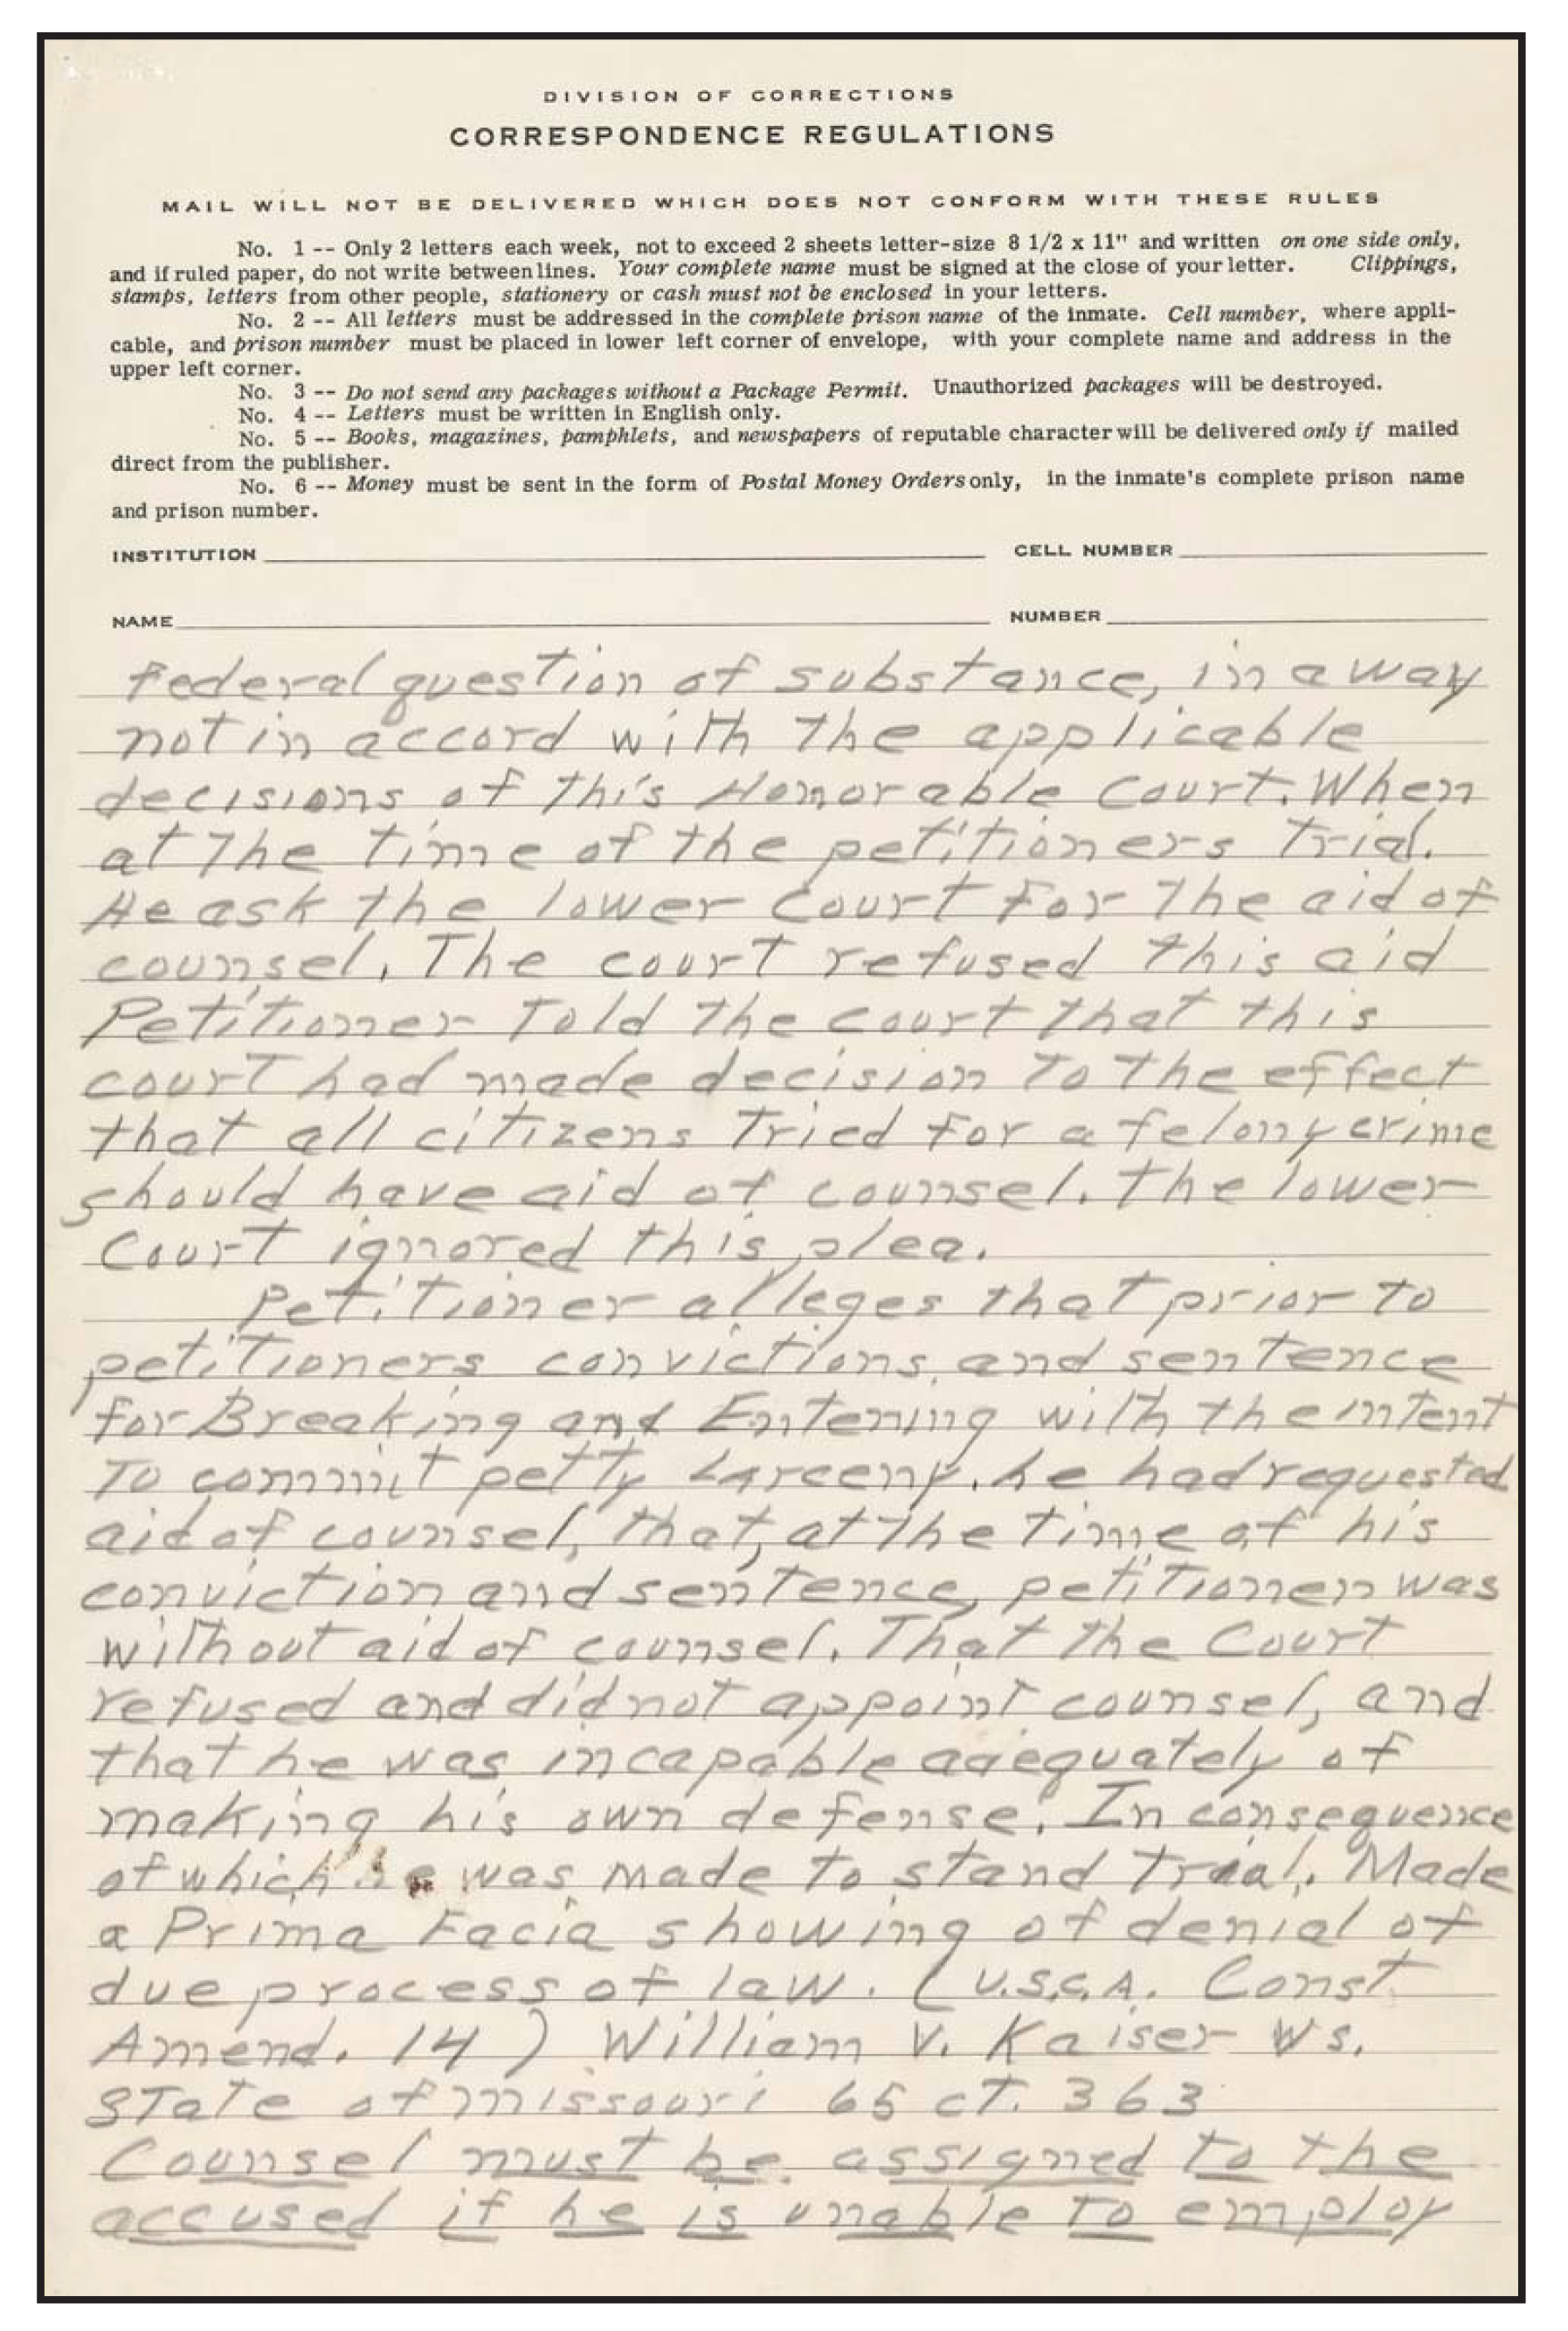 DIVISION OF CORRECTIONS
CORRESPONDENCE REGULATIONS
MAIL WILL NOT BE DELIVERED WHICH DOES NOT CONFORM WITH THESE RULES
No. 1 -- Only 2 letters each week, not to exceed 2 sheets letter-size 8 1/2 x 11" and written on one side only,
and if ruled paper, do not write between lines. Your complete name must be signed at the close of your letter. Clippings,
stamps, letters from other people, stationery or cash must not be enclosed in your letters.
No. 2 -- All letters must be addressed in the complete prison name of the inmate. Cell number, where appli-
cable, and prison number must be placed in lower left corner of envelope, with your complete name and address in the
upper left corner.
No. 3 -- Do not send any packages without a Package Permit. Unauthorized packages will be destroyed.
No. 4 -- Letters must be written in English only.
No. 5 -- Books, magazines, pamphlets, and newspapers of reputable character will be delivered only if mailed
direct from the publisher.
No. 6 -- Money must be sent in the form of Postal Money Orders only, in the inmate's complete prison name
and prison number.
INSTITUTION CELL NUMBER
NAME NUMBER
Federal question of substance, in a way
not in accord with the applicable
decisions of this Honorable Court. When
at the time of the petitioners trial.
He ask the lower Court for the aid of
counsel. The court refused this aid
Petitioner told the court that this
court had made decision to the effect
that all citizens tried for a felony crime
should have aid of counsel. The lower
Court ignored this plea.
Petitioner alleges that prior to
petitioners convictions, and sentence
for Breaking and Entening with the intent
to commit petty Larceny. he had requested
aid of counsel, that, at the time of his
conviction and sentence, petitionen was
without aid of counsel. That the Court
refused and did not appoint counsel, and
that he was incapable adequately of
making his own defense. In consequence
of which he was made to stand trial. Made
a Prima Facia showing of denial of
due process of law. (U.S.C.A. Const
Amend. 14) William V. Kaiser Vs.
State of Missouri 65 ct. 363
Counsel must be assigned to the
accused if he is unable to employ